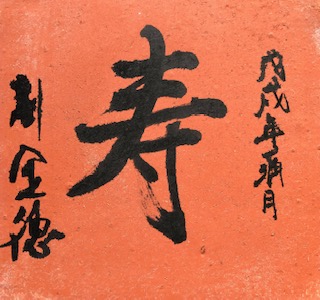 戊戌年月
寿
刘金德